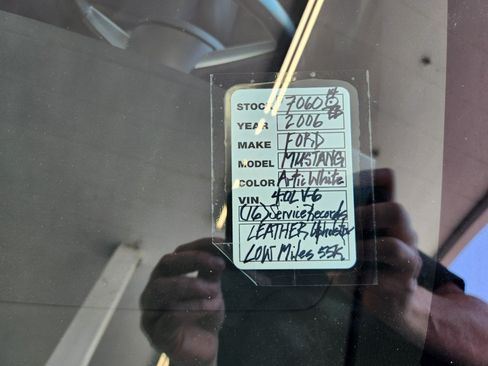 STOCK 7060
YEAR 2006
MAKE FORD
MODEL MUSTANG
COLOR Artic White
VIN 4.0L V-6
(16) Service Records
LEATHER Upholster
LOW Miles 55K